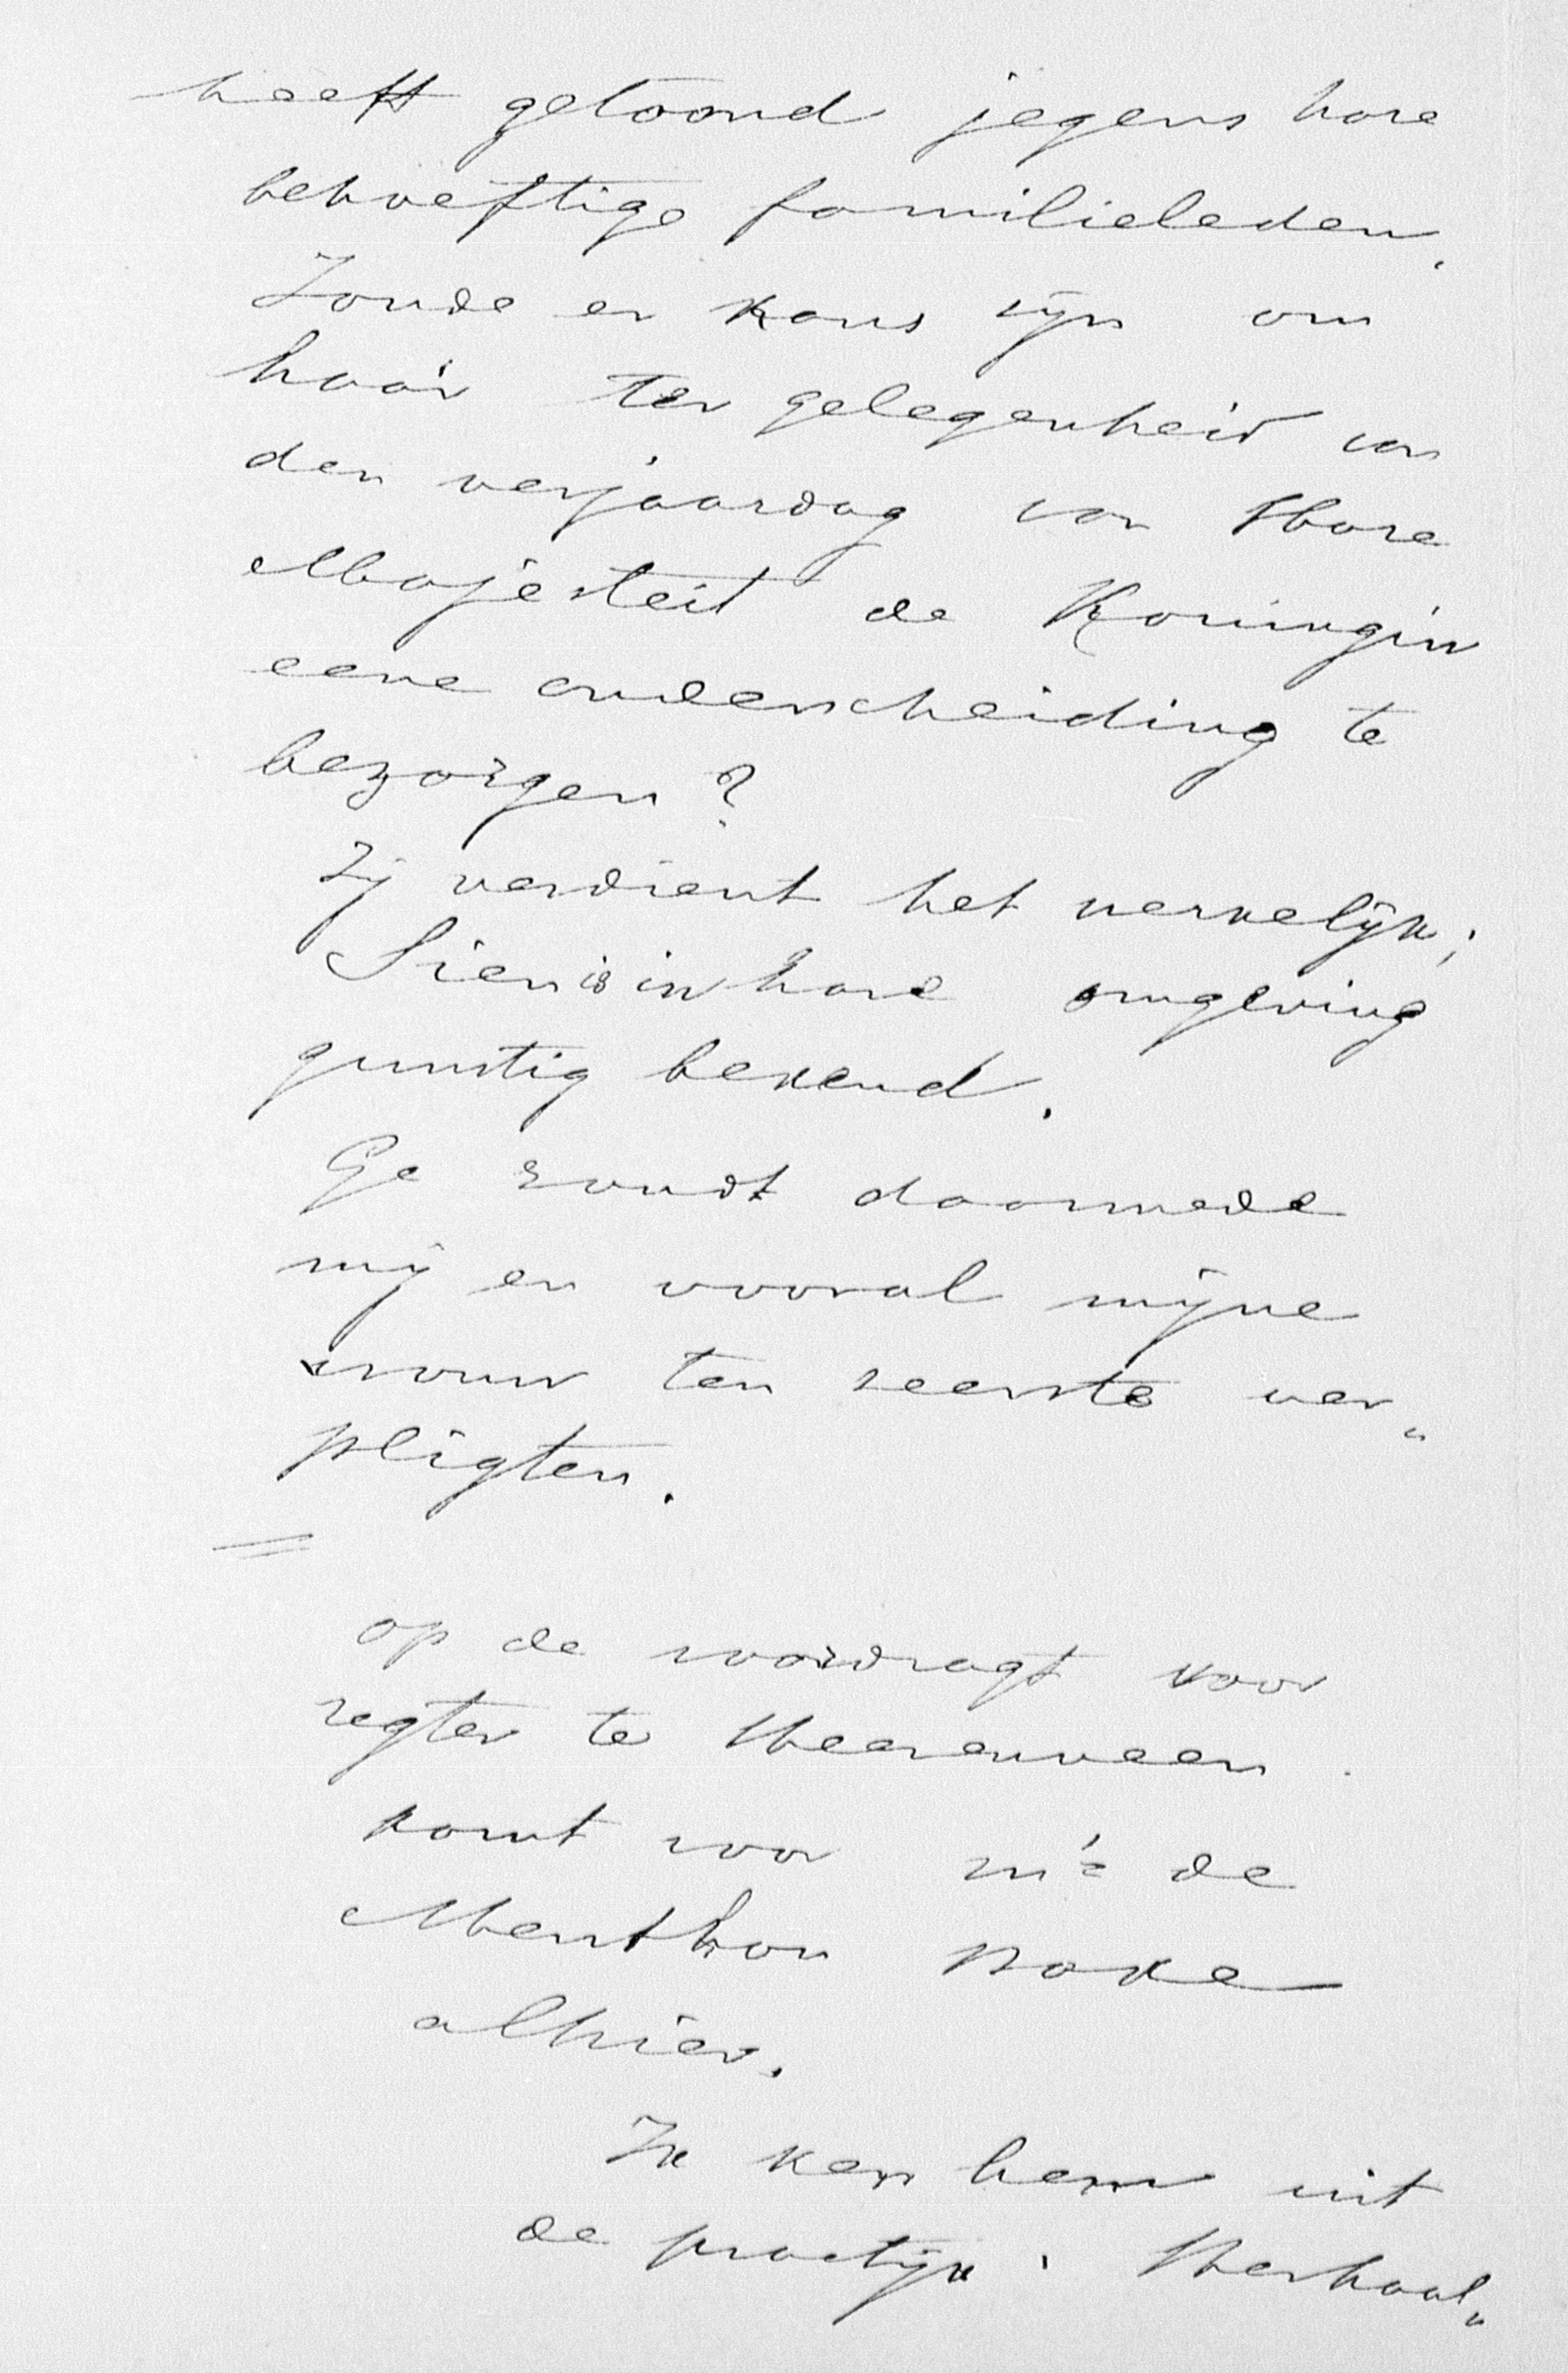 heeft getoond jegens hare
behoeftige familieleden.
Zoude er kans zijn om
haar ter gelegenheid van
den verjaardag van Hare
Majesteit de Koningin
eene onderscheiding te
bezorgen?
Zij verdient het werkelijk;
Sien is in hare omgeving
gunstig bekend.
Ge zoudt daarmede
mij en vooral mijne
vrouw ten zeerste ver„
pligten.
=
op de voordragt voor
regter te Heerenveen
komt voor mr de
Menthon Bake
alhier.
Ik ken hem uit
de practijk. Herhaal„